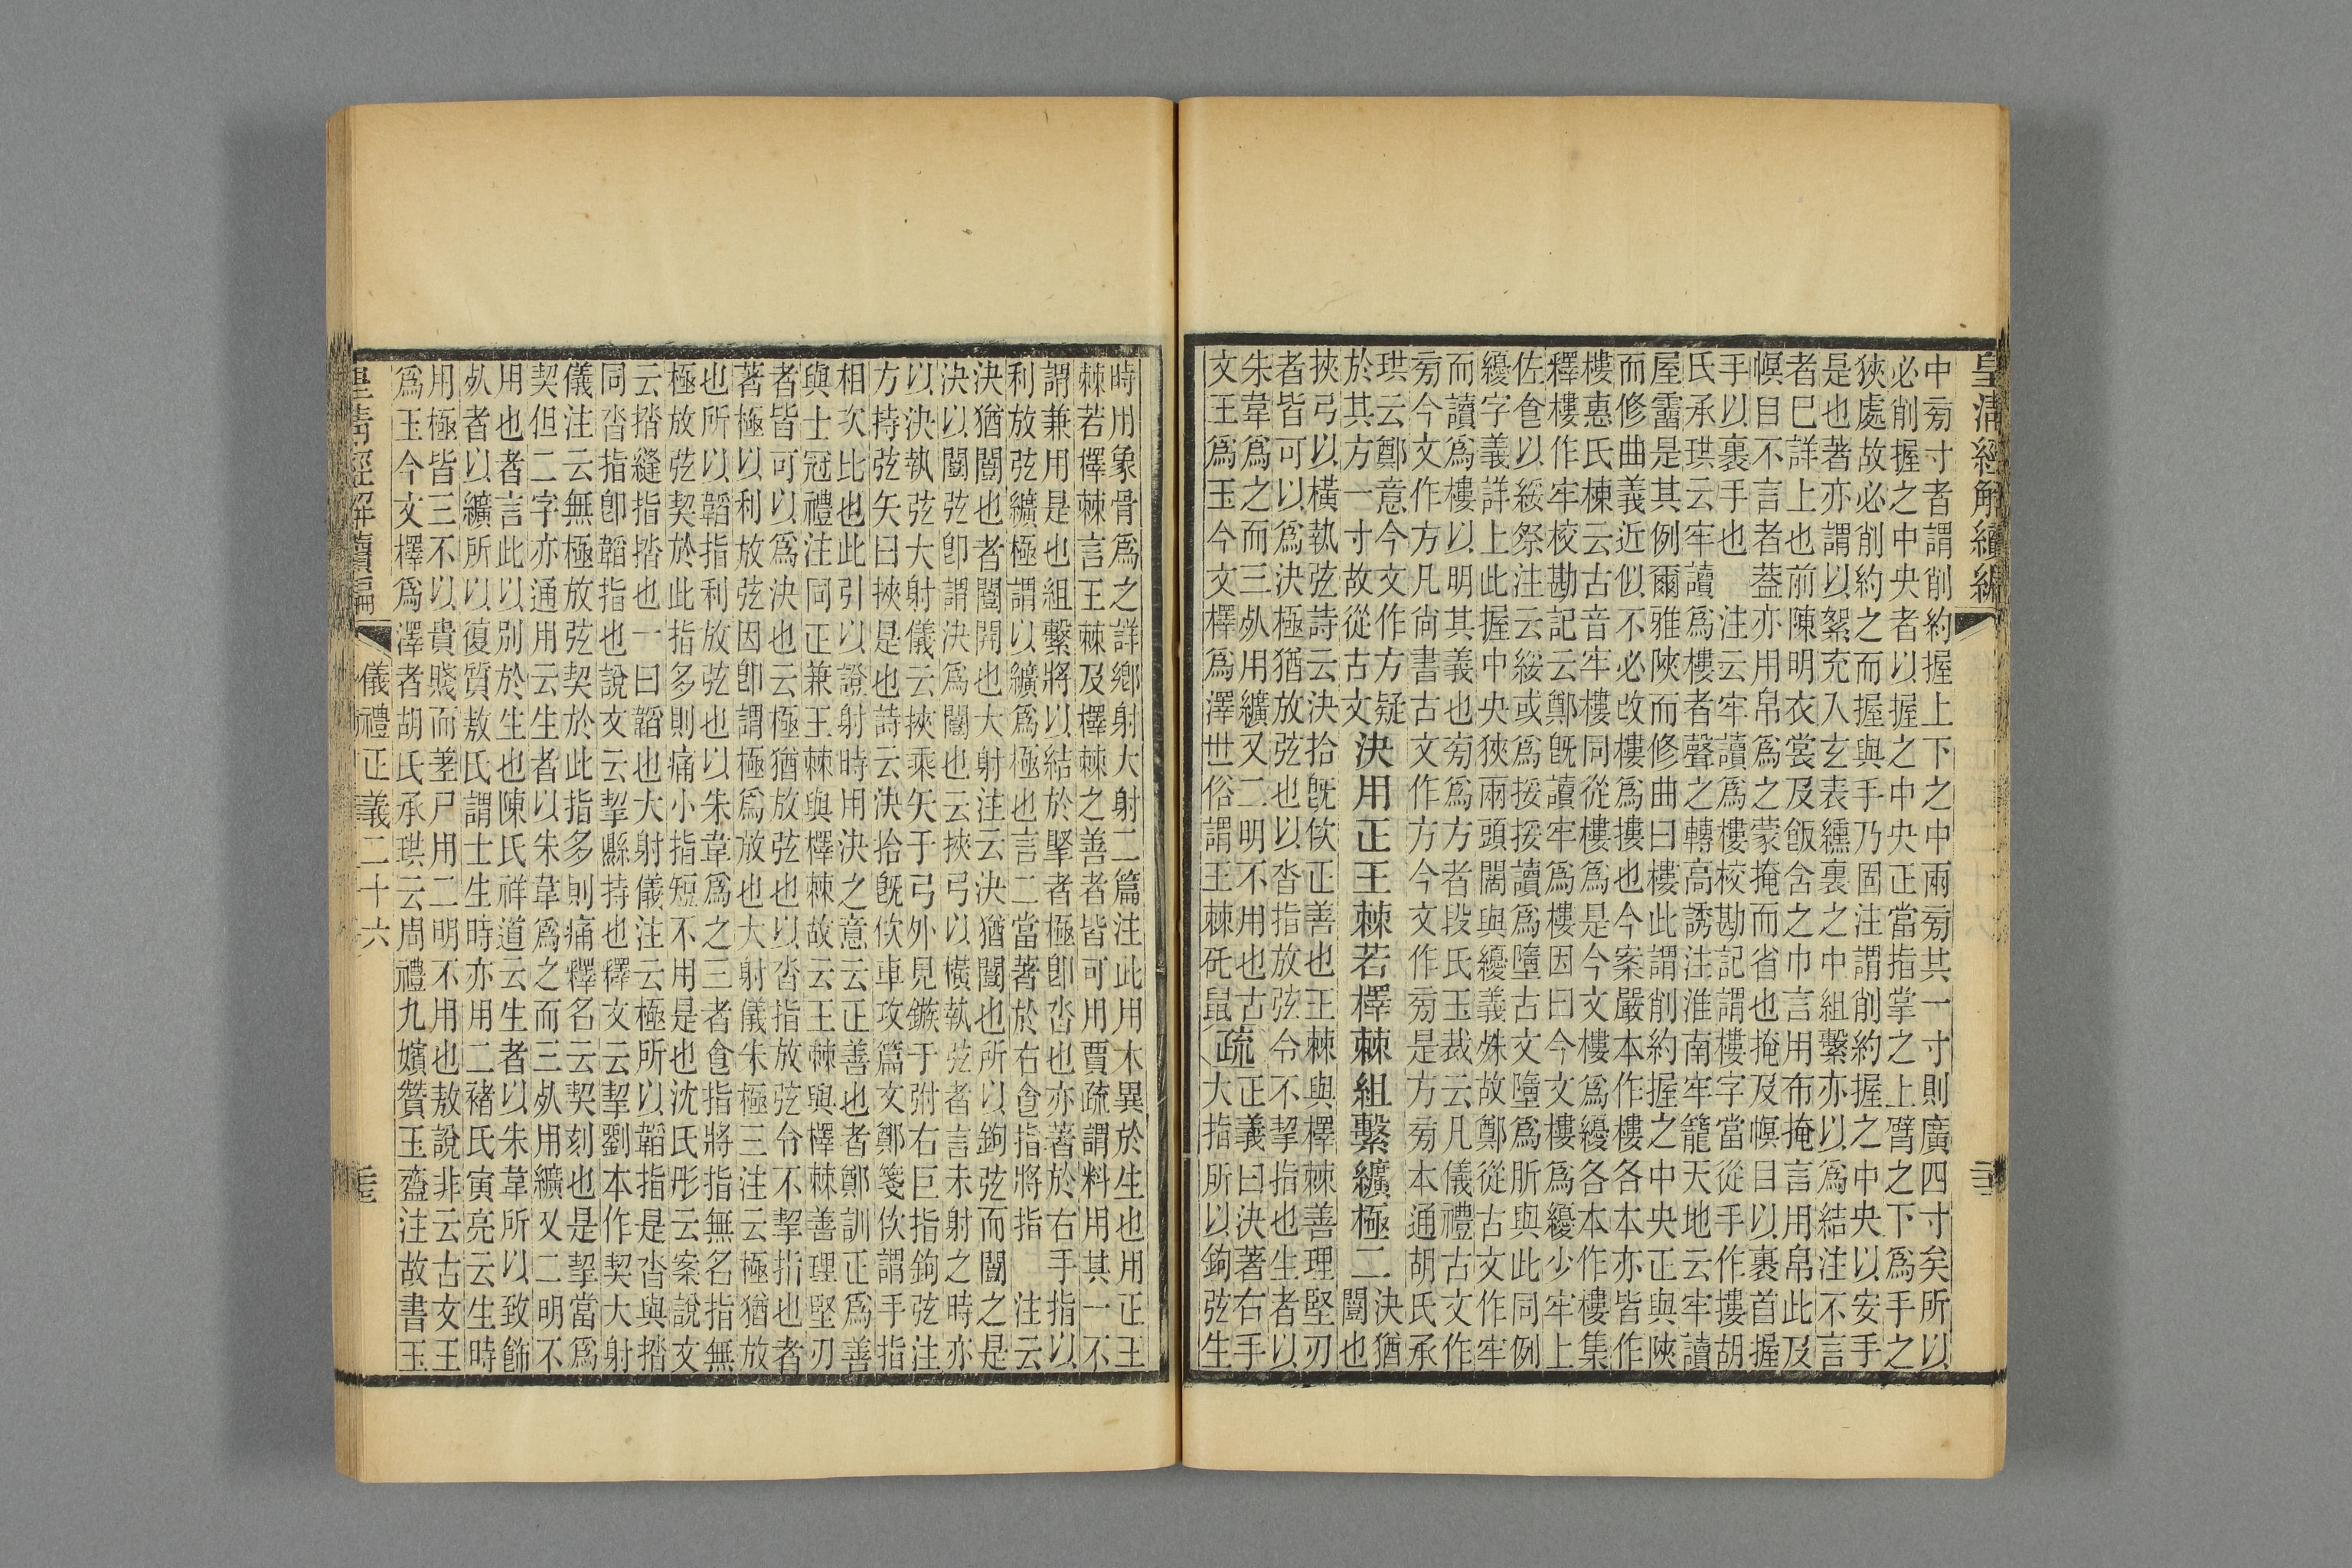 皇清經解續編
中旁寸者謂削約握上下之中兩旁其一寸則廣四寸矣所以
必削握之中央者以握之中央正當指掌之上臂之下爲手之
狹處故必削約之而握與手乃固注謂削約握之中央以安手
是也著亦謂以絮充入玄表纁裏之中組繫亦以爲結注不言
者巳詳上也前陳明衣裳及飯含之巾言用布掩言用帛此及
幎目不言者葢亦用帛爲之蒙掩而省也掩及幎目以裹首握
手以裹手也　注云牢讀爲樓校勘記謂樓字當從手作摟胡
氏承珙云牢讀爲樓者聲之轉高誘注淮南牢籠天地云牢讀
屋霤是其例爾雅陜而修曲曰樓此謂削約握之中央正與陜
而修曲義近似不必改樓爲摟也今案嚴本作樓各本亦皆作
樓惠氏棟云古音牢樓同從樓爲是今文樓爲纋各本作樓集
釋樓作牢校勘記云鄭旣讀牢爲樓因曰今文樓爲纋少牢上
佐食以綏祭注云綏或爲挼挼讀爲墮古文墮爲肵與此同例
纋字義詳上此握中央狹兩頭闊與纋義殊故鄭從古文作牢
而讀爲樓以明其義也旁爲方者段氏玉裁云凡儀禮古文作
旁今文作方凡尙書古文作方今文作旁是方旁本通胡氏承
珙云鄭意今文作方疑
於其方一寸故從古文
決用正王棘若檡棘組繫纊極二
決猶
闓也
挾弓以橫執弦詩云決拾旣佽正善也王棘與檡棘善理堅刃
者皆可以爲決極猶放弦也以沓指放弦令不挈指也生者以
朱韋爲之而三死用纊又二明不用也古
文王爲玉今文檡爲澤世俗謂王棘矺鼠
疏
正義曰決著右手
大指所以鉤弦生
時用象骨爲之詳鄉射大射二篇注此用木異於生也用正王
棘若檡棘言王棘及檡棘之善者皆可用賈疏謂料用其一不
謂兼用是也組繫將以結於掔者極卽沓也亦著於右手指以
利放弦纊極謂以纊爲極也言二當著於右食指將指　注云
決猶闓也者闓開也大射注云決猶闓也所以鉤弦而闓之是
決以闓弦卽謂決爲闓也云挾弓以橫執弦者言未射之時亦
以決執弦大射儀云挾乘矢于弓外見鏃于弣右巨指鉤弦注
方持弦矢曰挾是也詩云決拾旣佽車攻篇文鄭箋佽謂手指
相次比也此引以證射時用決之意云正善也者鄭訓正爲善
與士冠禮注同正兼王棘與檡棘故云王棘與檡棘善理堅刃
者皆可以爲決也云極猶放弦也以沓指放弦令不挈指也者
著極以利放弦因卽謂極爲放也大射儀朱極三注云極猶放
也所以韜指利放弦也以朱韋爲之三者食指將指無名指無
極放弦契於此指多則痛小指短不用是也沈氏彤云案說文
云揩縫指揩也一曰韜也大射儀注云極所以韜指是沓與揩
同沓指卽韜指也說文云挈縣持也釋文云挈劉本作契大射
儀注云無極放弦契於此指多則痛釋名云契刻也是挈當爲
契但二字亦通用云生者以朱韋爲之而三死用纊又二明不
用也者言此以別於生也陳氏祥道云生者以朱韋所以致飾
死者以纊所以復質敖氏謂士生時亦用二褚氏寅亮云生時
用極皆三不以貴賤而差尸用二明不用也敖說非云古文王
爲玉今文檡爲澤者胡氏承珙云周禮九嬪贊玉齍注故書玉
皇清經解續編　儀禮正義二十六